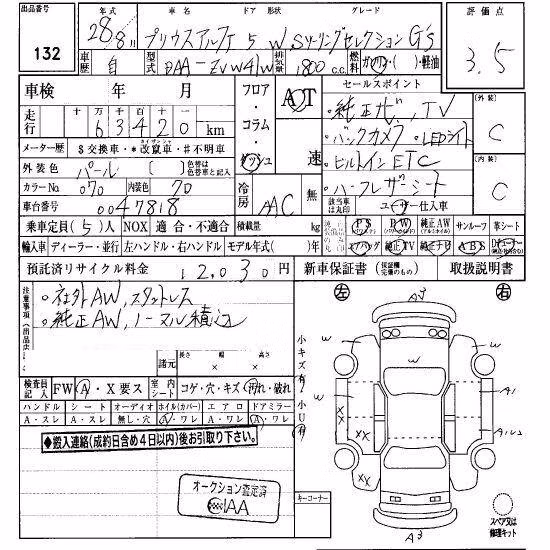 出品番号 年式 車名 ドア 形状 グレード 評価点
132 28年8月 プリウスアルファ 5 W Sツーリングセレクション G's 3.5
車歴 自 型式 DAA-ZVW41W 排気量 1800 c.c. 燃料 ガソリン・( )・軽油
車検 年 月 フロア・コラム・ダッシュ AT セールスポイント [外装]
走行 十 万 千 百 十 6 3 4 2 0 km 速 ・純正ナビ、TV C
メーター歴 $交換車・*改竄車・#不明車 ・バックカメラ ・LEDライト
外装色 パール ( ) 色替は色替車と記入 ・ビルトインETC [内装]
カラーNo. 070 内装色 70 冷房 AAC 無 ・ハーフレザーシート C
車台番号 0047818 該当車は丸印 ユーザー仕入車
乗車定員 (5)人 NOX 適合・不適合 積載量 kg PS PW 純正AW(アルミホイル) サンルーフ 革シート
輸入車 ディーラー・並行 左ハンドル・右ハンドル モデル年式( )年 エアバッグ 純正TV 純正ナビ ABS
預託済リサイクル料金 12,030円 新車保証書(保証欄完備のもの) 取扱説明書
注意事項 ・社外AW、スタットレス 左 右
・純正AW、ノーマル積込
長さ 幅 高さ
諸元 × ×
検査員記入 FW A・X要ス 室内シート コゲ・穴・キズ・汚れ・破れ
ハンドル シート オーディオ ホイル(カバー) エアロ ドアミラー
A・スレ A・スレ 無し・穴 A・ワレ A・ワレ A・ワレ
小キズ有 小U有
●搬入連絡(成約日含め4日以内)後お引取り下さい。
オークション査定済
IAA
キーコーナー
スペア又は修理キット
W W W A1 XX XX XX A3